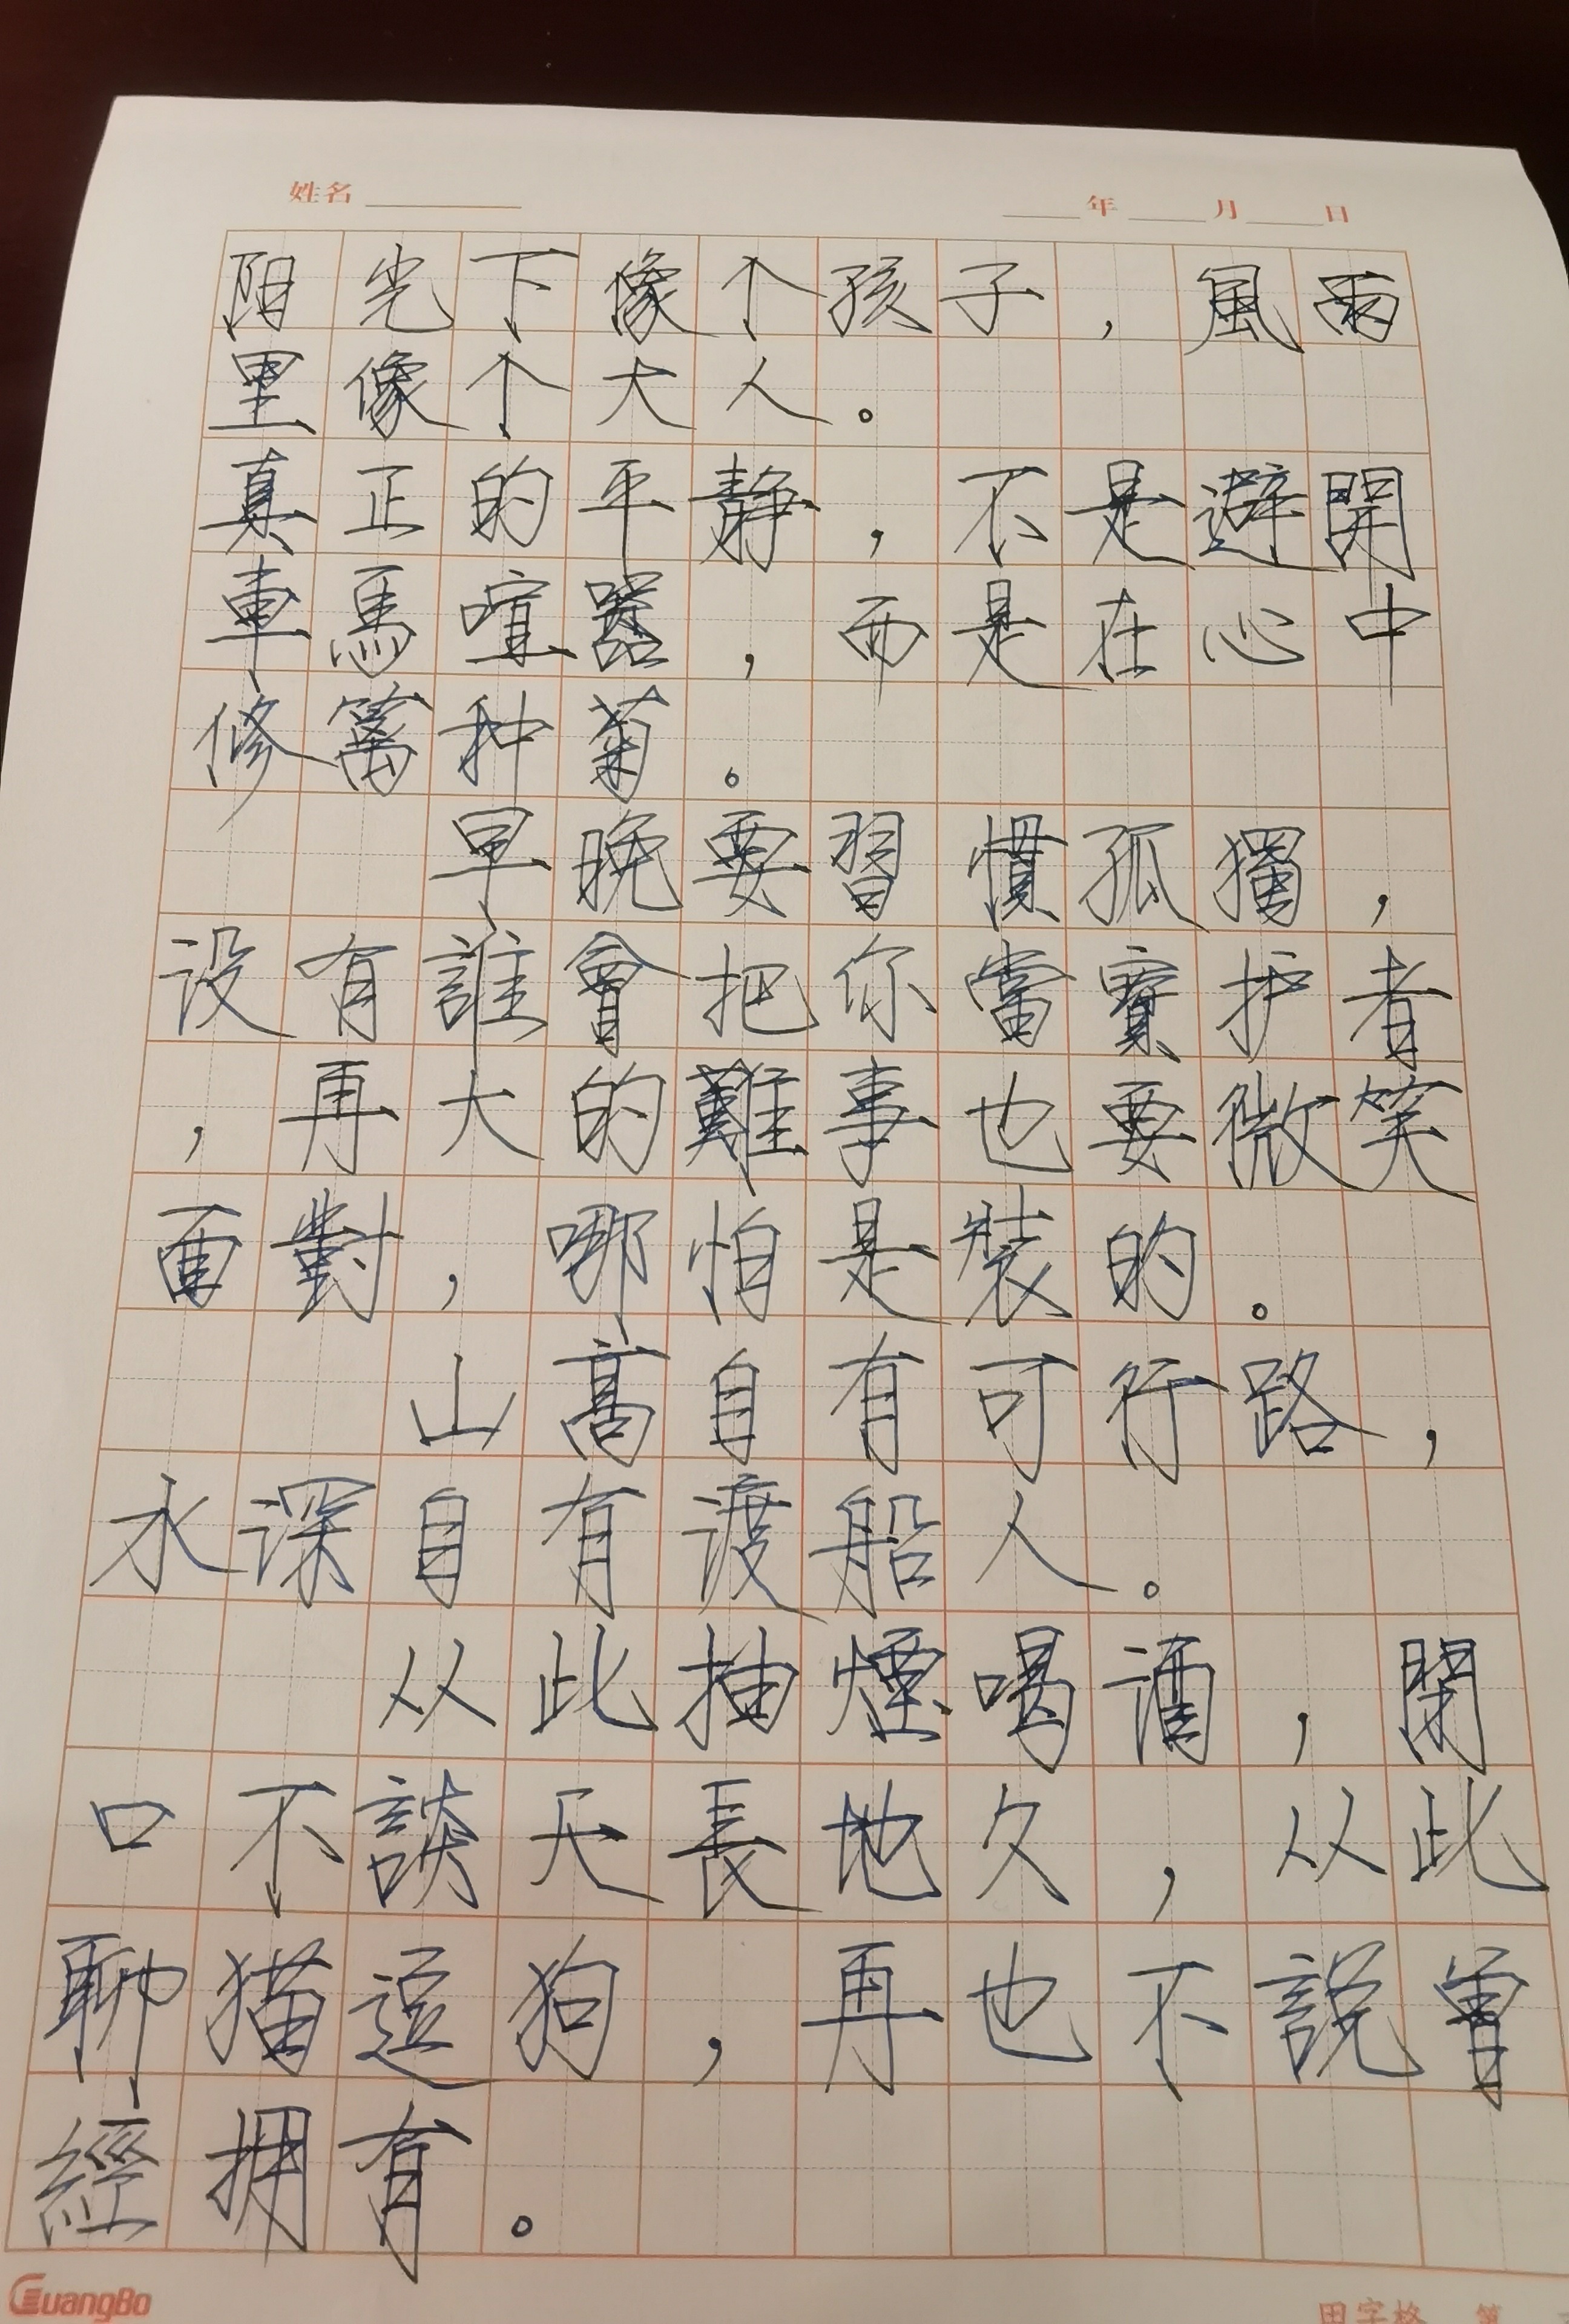 姓名 年 月 日
阳光下像个孩子，風雨
里像个大人。
真正的平静，不是避開
車馬喧囂，而是在心中
修篱种菊。
早晚要習慣孤獨，
没有誰會把你當寶护着
，再大的難事也要微笑
面對，哪怕是裝的。
山高自有可行路，
水深自有渡船人。
从此抽煙喝酒，閉
口不談天長地久，从此
聊猫逗狗，再也不説曾
經拥有。
GuangBo
田字格 第